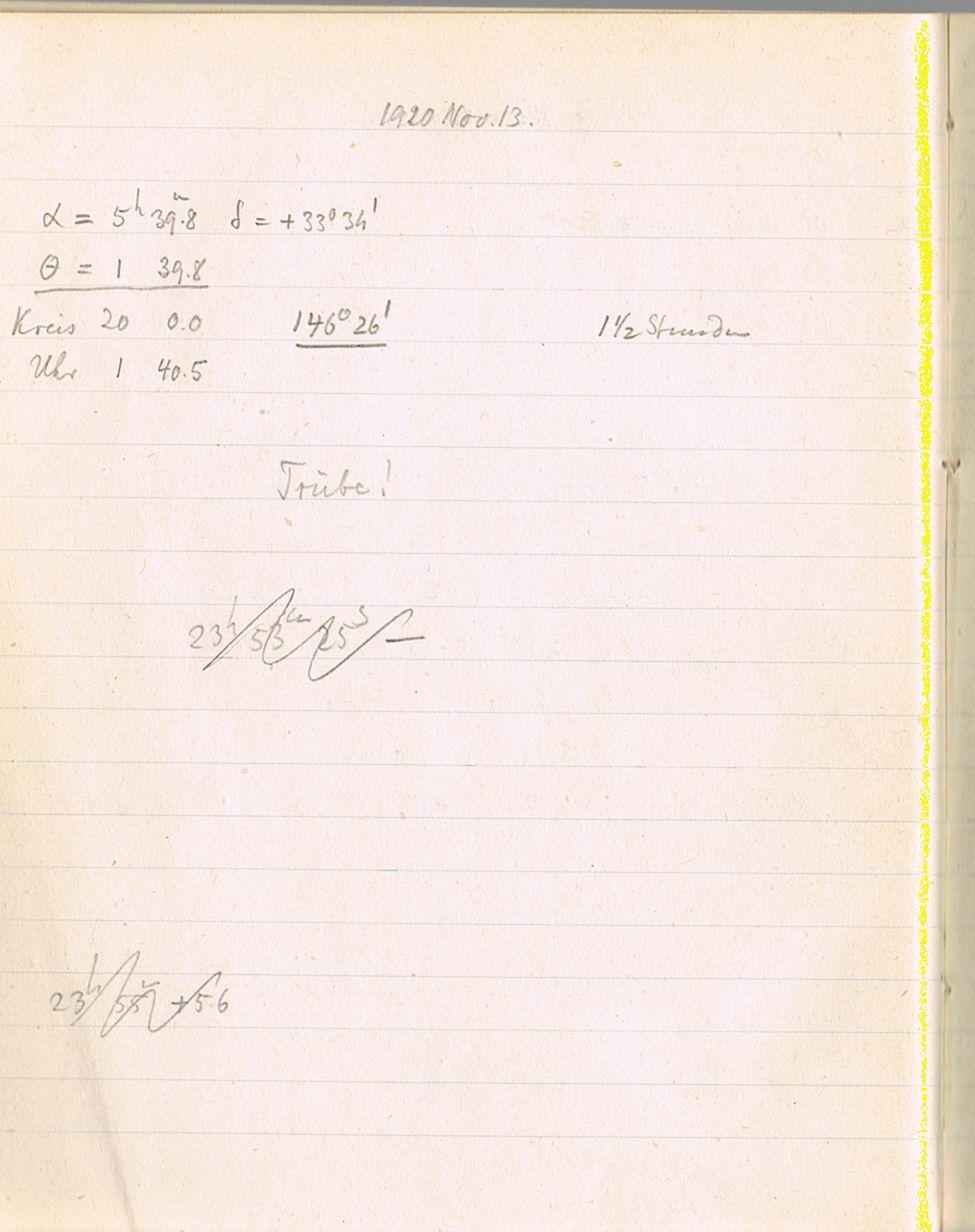 1920 Nov. 13.
α = 5ʰ 39.8ᵐ δ = +33° 34'
θ = 1 39.8
Kreis 20 0.0 146° 26' 1 1/2 Stunden
Uhr 1 40.5
Trübe!
23ʰ 53ᵐ 25ˢ —
23ʰ